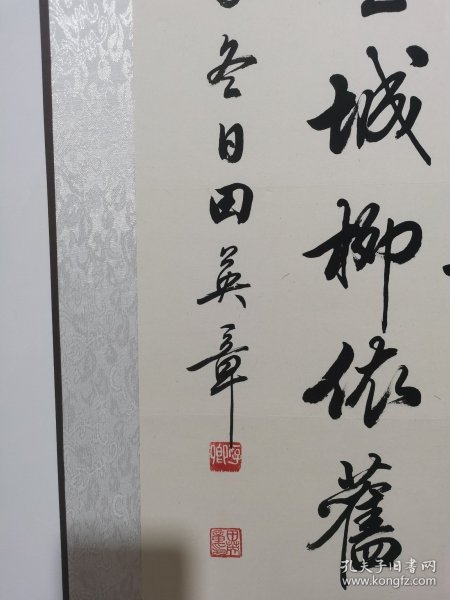 城柳依舊
冬日田英章
孔夫子旧书网
www.kongfz.com